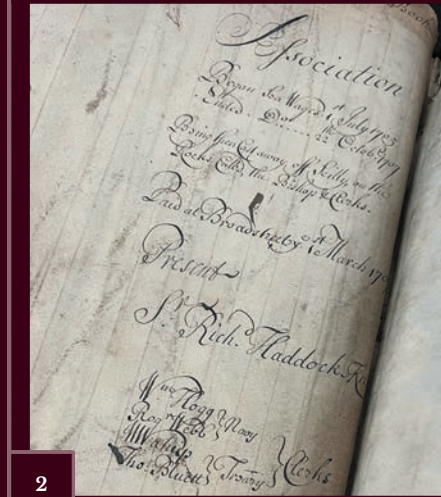 Book
Association
Began Sea Wages 1st July 1703
Ended Do 22th Octobr 1707
Being then Cast away off Scilly on the
Rocks Called the Bishop & Clerks.
Paid at Broadstreet by 1st March 170
Present
Sr. Richd. Haddock Kt
Wm Hogg
Rogr Webb } Navy
Tho: Bluett } Treasry } Clerks
2